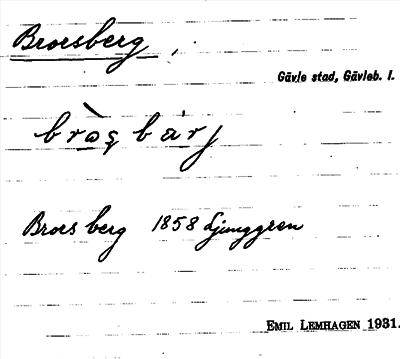 Brorsberg,
Gävle stad, Gävleb. l.
Brors berg 1858 Ljunggren
EMIL LEMHAGEN 1931.